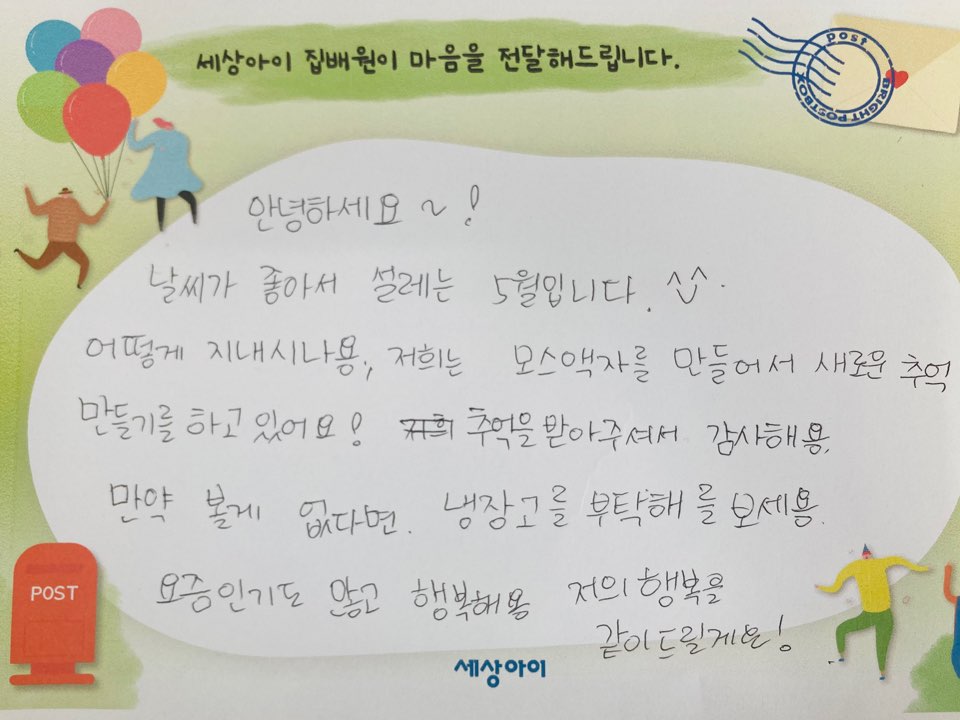 세상아이 집배원이 마음을 전달해드립니다.
post
BRIGHT POSTBOX
안녕하세요 ~ !
날씨가 좋아서 설레는 5월입니다. ^^.
어떻게 지내시나용, 저희는 모스액자를 만들어서 새로운 추억
만들기를 하고 있어요! 저희 추억을 받아주셔서 감사해용.
만약 볼게 없다면. 냉장고를 부탁해를 보세용.
요즘인기도 많고 행복해용 저의 행복을
같이드릴게요!
POST
세상아이